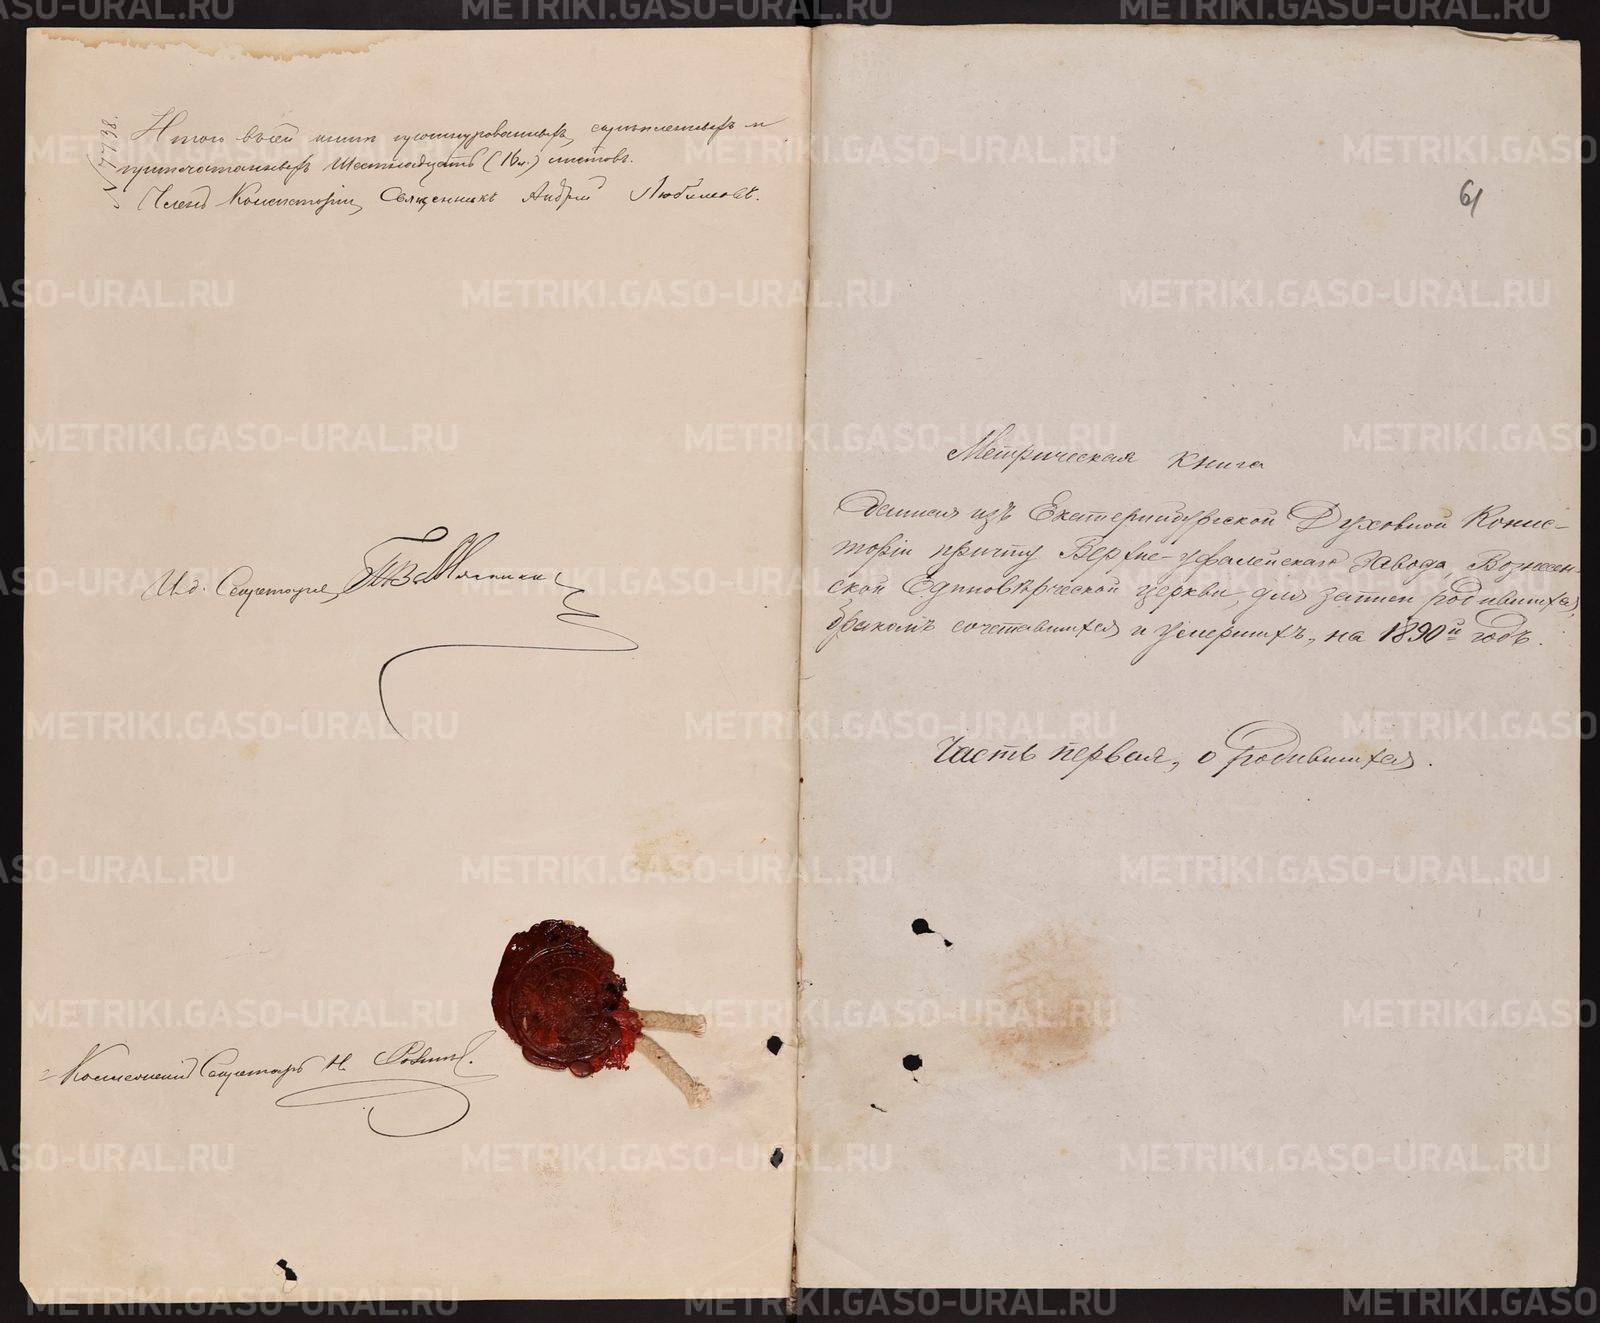 № 7738.
Итого въ сей книгѣ пронумерованныхъ, скрѣпленныхъ и
припечатанныхъ шестнадцать (16 л.) листовъ.
Членъ Консисторіи, Священникъ Андрей Любимовъ.
И. д. Секретаря
Секретарь Н.
61
Метрическая книга
данная изъ Екатеринбургской Духовной Консис-
торіи причту Верхне-Уфалейскаго завода, Вознесен-
ской Единовѣрческой церкви, для записи родившихся,
бракомъ сочетавшихся и умершихъ, на 1890й годъ.
Часть первая, о родившихся.
METRIKI.GASO-URAL.RU